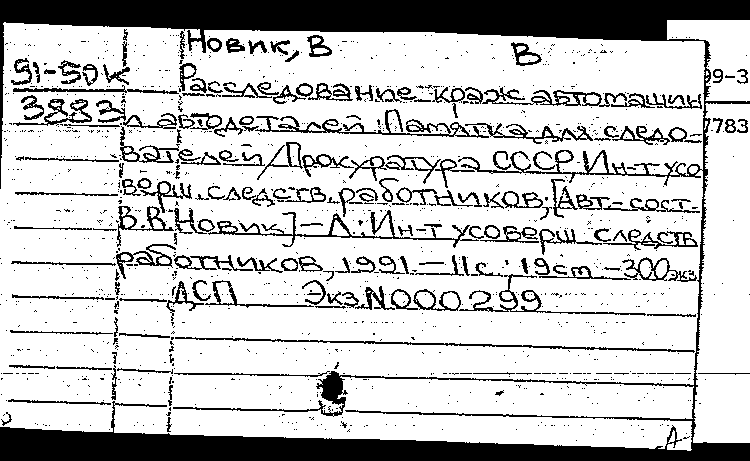 Новик, В В
91-50к Расследование краж автомашин
3883 и автодеталей: Памятка для следо-
вателей/Прокуратура СССР, Ин-т усо
верш. следств. работников; [Авт.-сост.
В.В. Новик]—Л.: Ин-т усоверш следств
работников, 1991.—11с.; 19cm —300экз
ДСП Экз N000299
99-3
7783
А